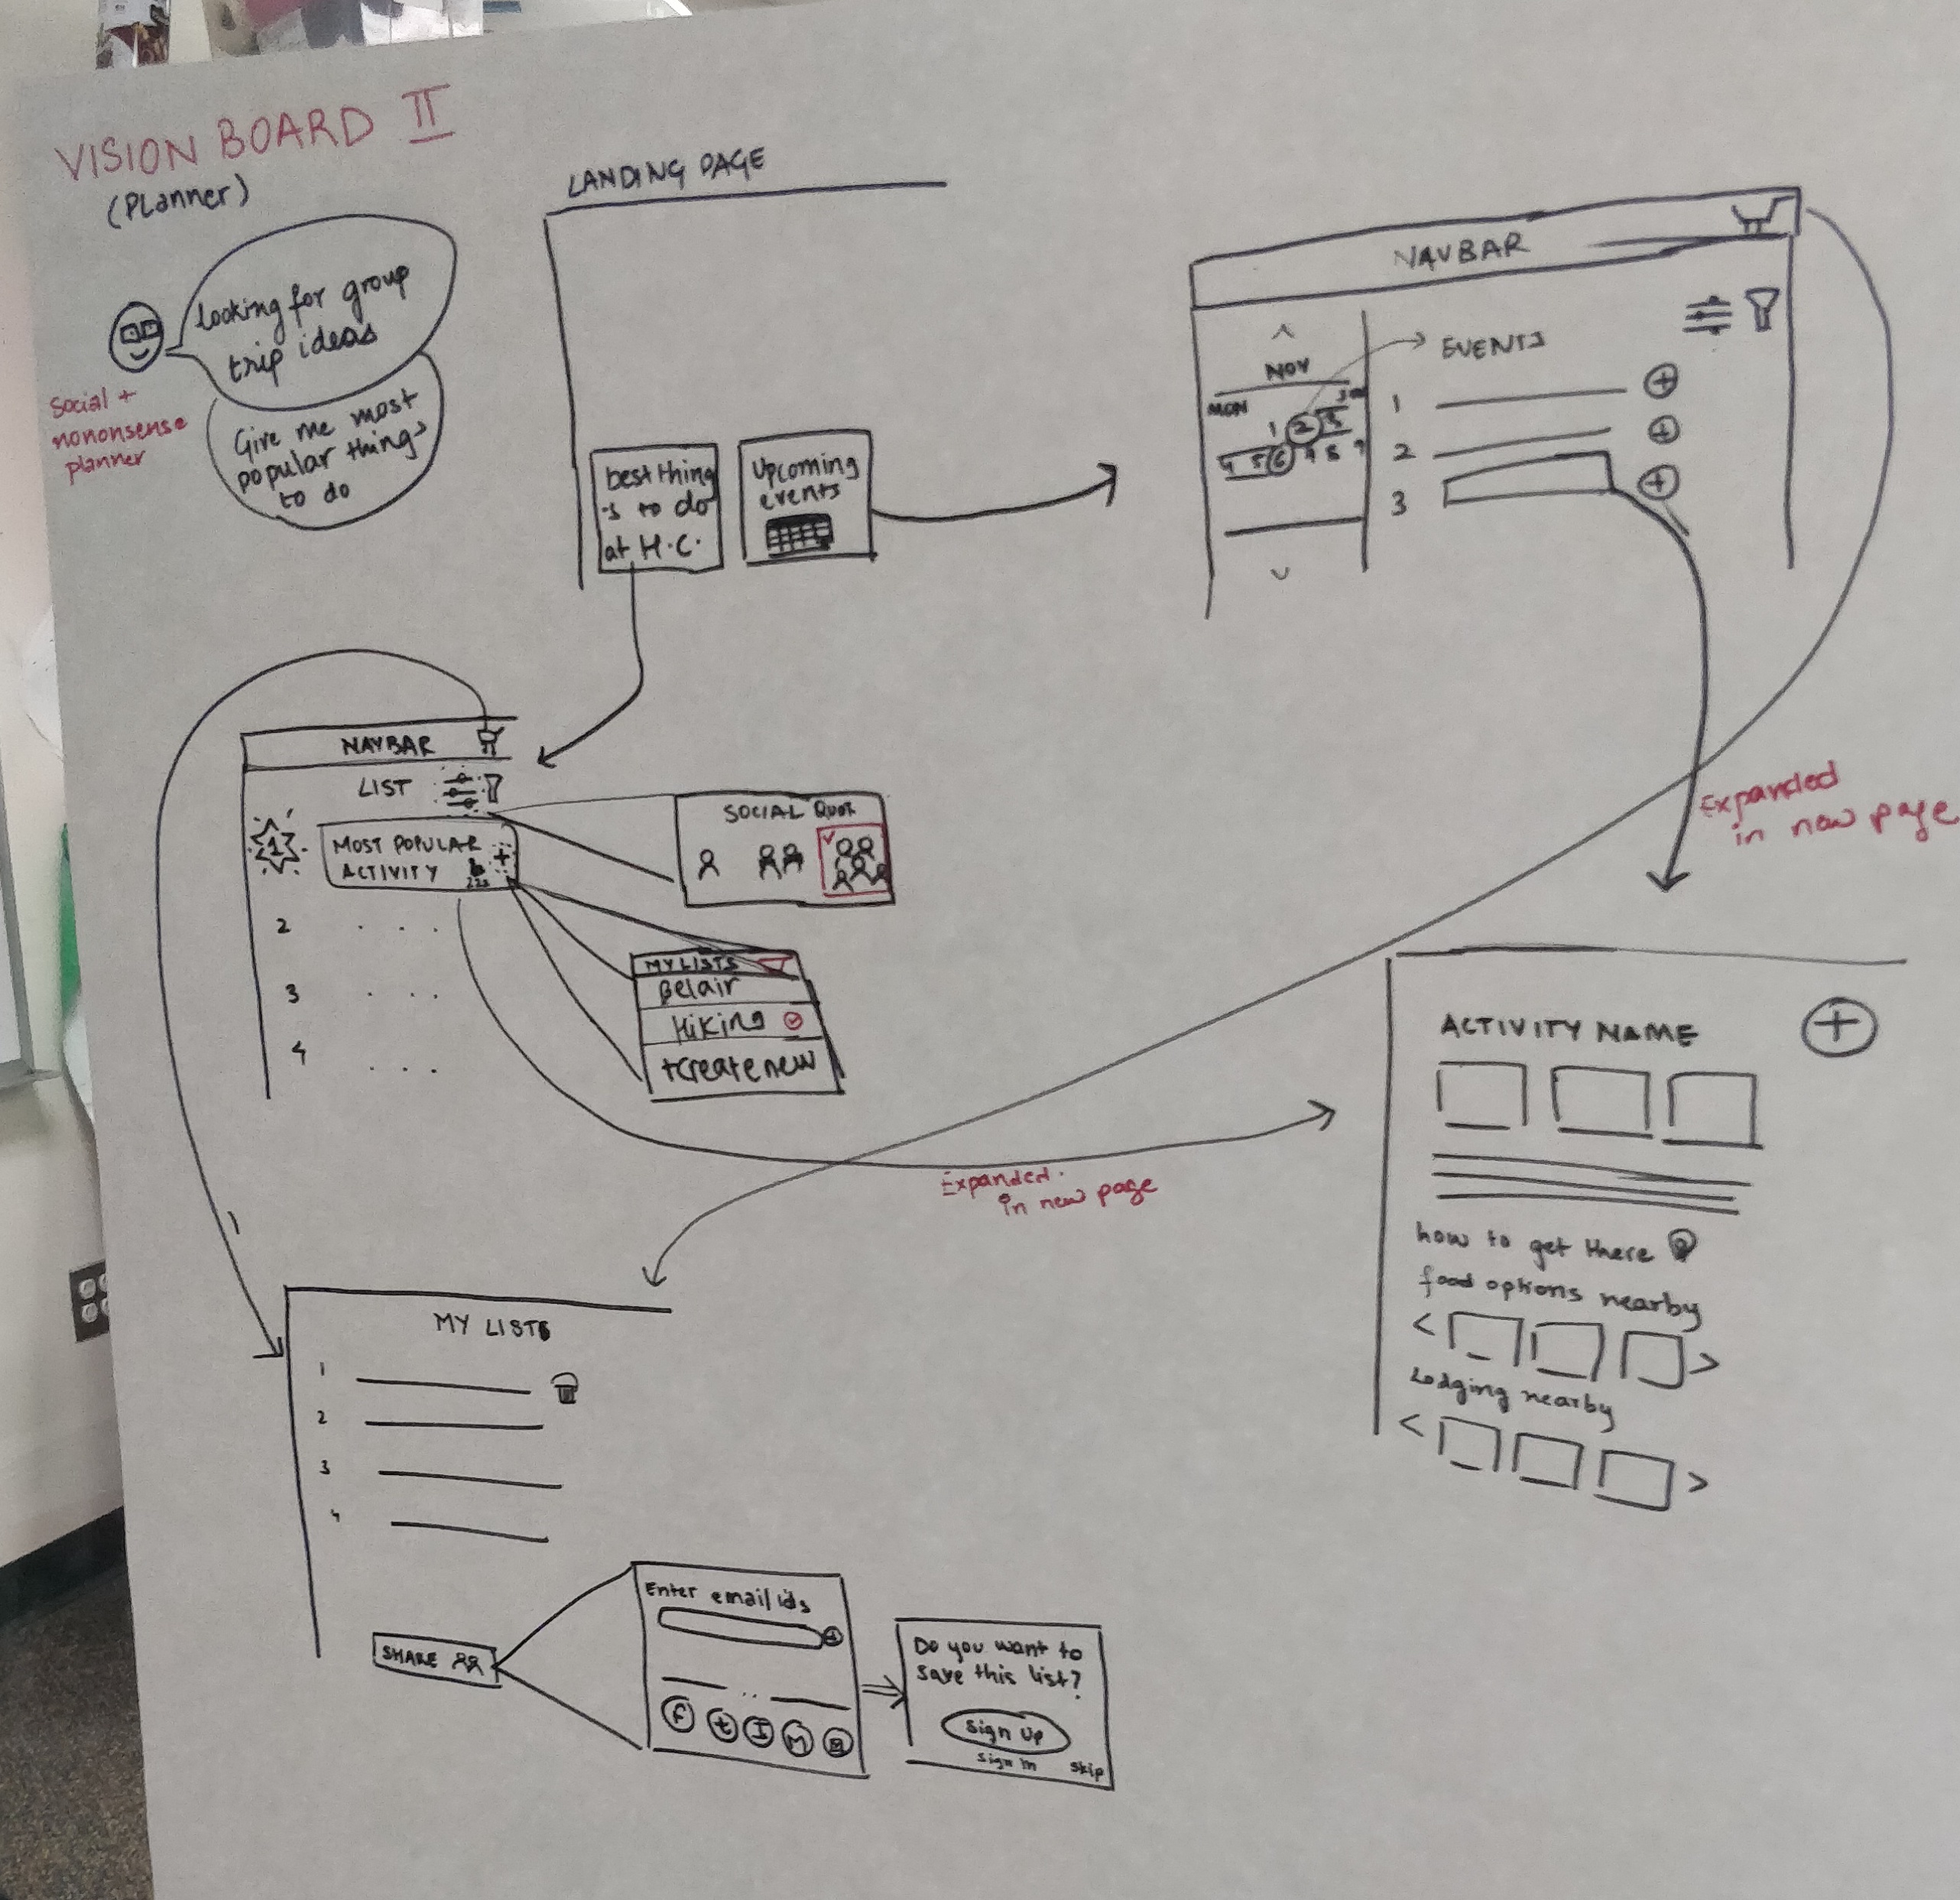 VISION BOARD II
(Planner)
looking for group
trip ideas
Give me most
popular things
to do
Social +
nononsense
planner
LANDING PAGE
best thing
-s to do
at H.C.
Upcoming
events
NAVBAR
NOV
MON
1 2 3
4 5 6 7 8 9
EVENTS
1
2
3
Expanded
in new page
NAVBAR
LIST
1
MOST POPULAR
ACTIVITY
+
2
3
4
SOCIAL
MY LISTS
Belair
Hiking
+create new
Expanded
in new page
ACTIVITY NAME
+
how to get there
food options nearby
< >
Lodging nearby
< >
MY LISTS
1
2
3
4
SHARE
Enter email ids
f t I M
Do you want to
save this list?
Sign Up
Sign in
Skip